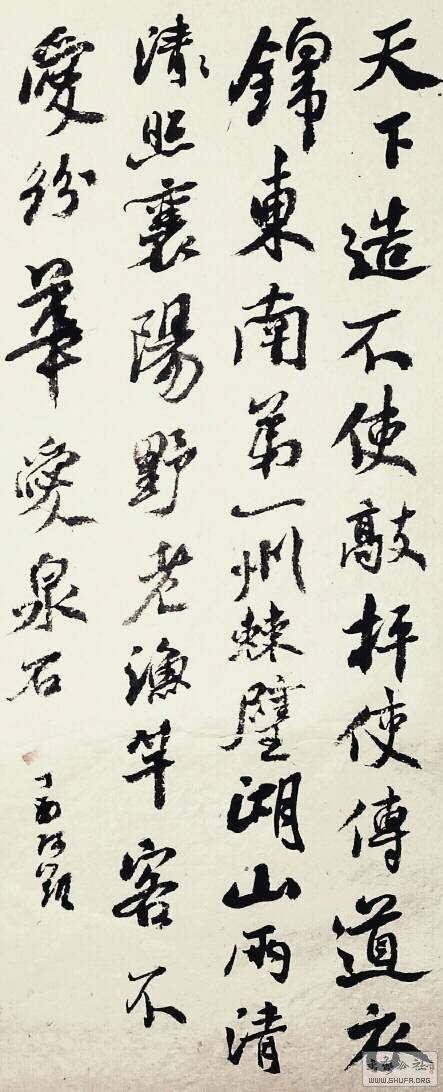 天下造不使敲抨使傳道衣
錦東南第一州棘璧湖山兩清
清照襄陽野老漁竿客不
愛紛華愛泉石
WWW.SHUFA.ORG